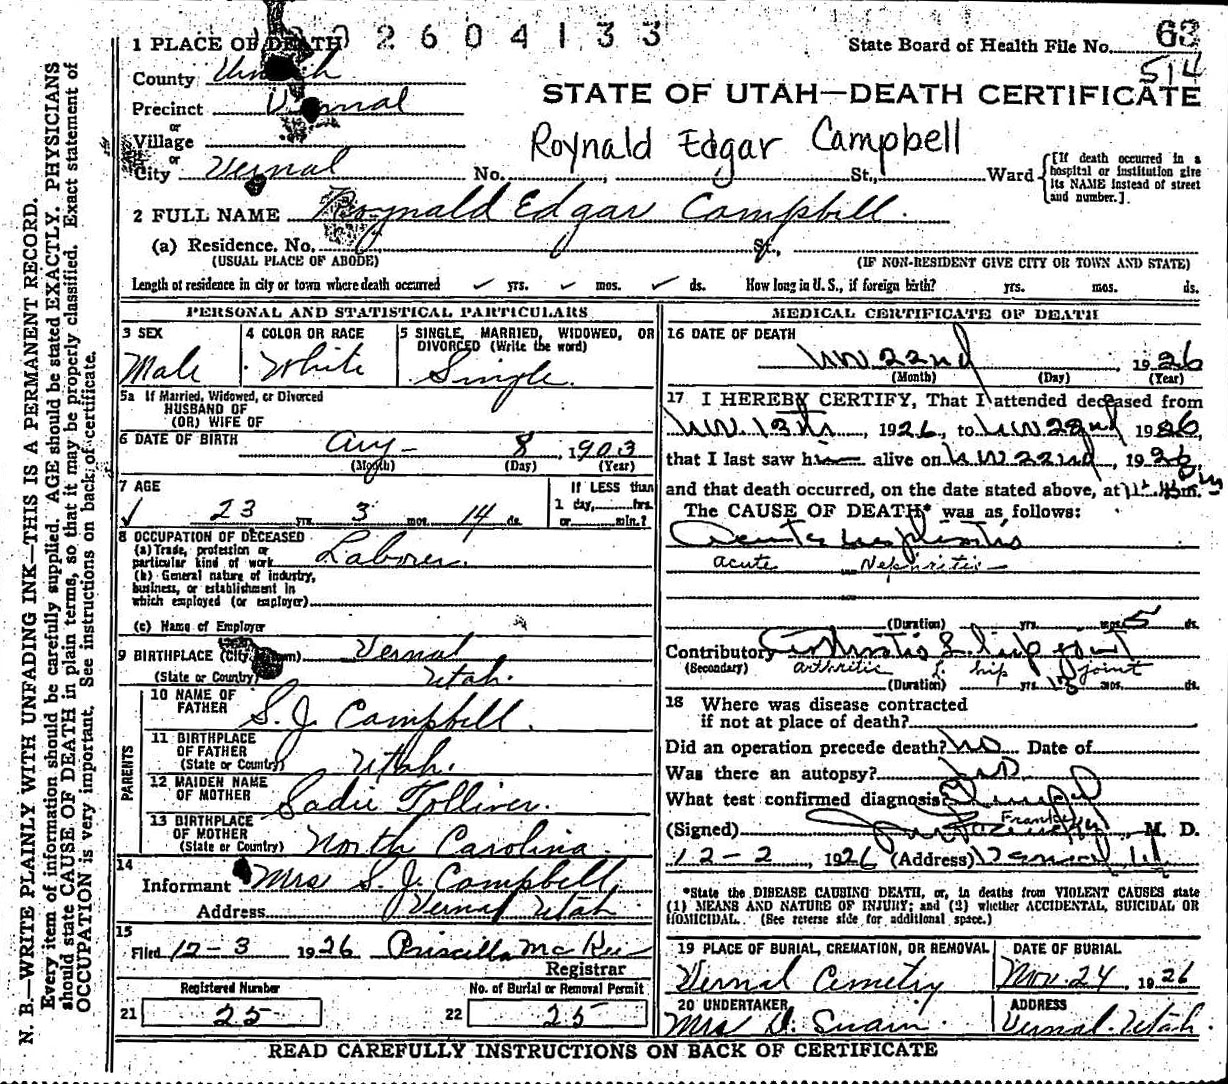 2604133
State Board of Health File No. 63
514
1 PLACE OF DEATH
County Uintah
STATE OF UTAH—DEATH CERTIFICATE
Precinct Vernal
or
Village
or
Roynald Edgar Campbell
City Vernal No. , St., Ward {[If death occurred in a hospital or institution give its NAME instead of street and number.]
2 FULL NAME Roynald Edgar Campbell.
(a) Residence. No. St.,
(USUAL PLACE OF ABODE) (IF NON-RESIDENT GIVE CITY OR TOWN AND STATE)
Length of residence in city or town where death occurred ✓ yrs. ✓ mos. ✓ ds. How long in U. S., if foreign birth? yrs. mos. ds.
PERSONAL AND STATISTICAL PARTICULARS
3 SEX
Male
4 COLOR OR RACE
White
5 SINGLE, MARRIED, WIDOWED, OR
DIVORCED (Write the word)
Single.
5a If Married, Widowed, or Divorced
HUSBAND OF
(OR) WIFE OF
6 DATE OF BIRTH Aug - 8, 1903
(Month) (Day) (Year)
7 AGE
✓ 23 yrs. 3 mos. 14 ds.
If LESS than
1 day, hrs.
or min.?
8 OCCUPATION OF DECEASED
(a) Trade, profession or
particular kind of work Laborer.
(b) General nature of industry,
business, or establishment in
which employed (or employer)
(c) Name of Employer
9 BIRTHPLACE (City or town) Vernal
(State or Country) Utah.
PARENTS
10 NAME OF
FATHER S. J. Campbell.
11 BIRTHPLACE
OF FATHER
(State or Country) Utah.
12 MAIDEN NAME
OF MOTHER Sadie Tolliver.
13 BIRTHPLACE
OF MOTHER
(State or Country) North Carolina.
14
Informant Mrs S. J. Campbell,
Address Vernal Utah.
15
Filed 12-3 1926 Priscilla McKee
Registrar
Registered Number
21 25
No. of Burial or Removal Permit
22 25
MEDICAL CERTIFICATE OF DEATH
16 DATE OF DEATH
Nov 22nd, 1926
(Month) (Day) (Year)
17 I HEREBY CERTIFY, That I attended deceased from
Nov 13th, 1926, to Nov 22nd 1926,
that I last saw him alive on Nov 22nd, 1926,
and that death occurred, on the date stated above, at m.
The CAUSE OF DEATH* was as follows:
Acute Nephritis
acute Nephritis
(Duration) yrs. mos. 5 ds.
Contributory Arthritis L hip joint
(Secondary) arthritic L. hip joint
(Duration) yrs. mos. ds.
18 Where was disease contracted
if not at place of death?
Did an operation precede death? No Date of
Was there an autopsy? No.
What test confirmed diagnosis?
Franke
(Signed) M. D.
12-2, 1926 (Address) Vernal Ut
*State the DISEASE CAUSING DEATH, or, in deaths from VIOLENT CAUSES state
(1) MEANS AND NATURE OF INJURY; and (2) whether ACCIDENTAL, SUICIDAL OR
HOMICIDAL. (See reverse side for additional space.)
19 PLACE OF BURIAL, CREMATION, OR REMOVAL
Vernal Cemetry
DATE OF BURIAL
Nov. 24, 1926
20 UNDERTAKER
Mrs D. Swain.
ADDRESS
Vernal. Utah.
READ CAREFULLY INSTRUCTIONS ON BACK OF CERTIFICATE
N. B.—WRITE PLAINLY WITH UNFADING INK—THIS IS A PERMANENT RECORD.
Every item of information should be carefully supplied. AGE should be stated EXACTLY. PHYSICIANS
should state CAUSE OF DEATH in plain terms, so that it may be properly classified. Exact statement of
OCCUPATION is very important. See instructions on back of certificate.